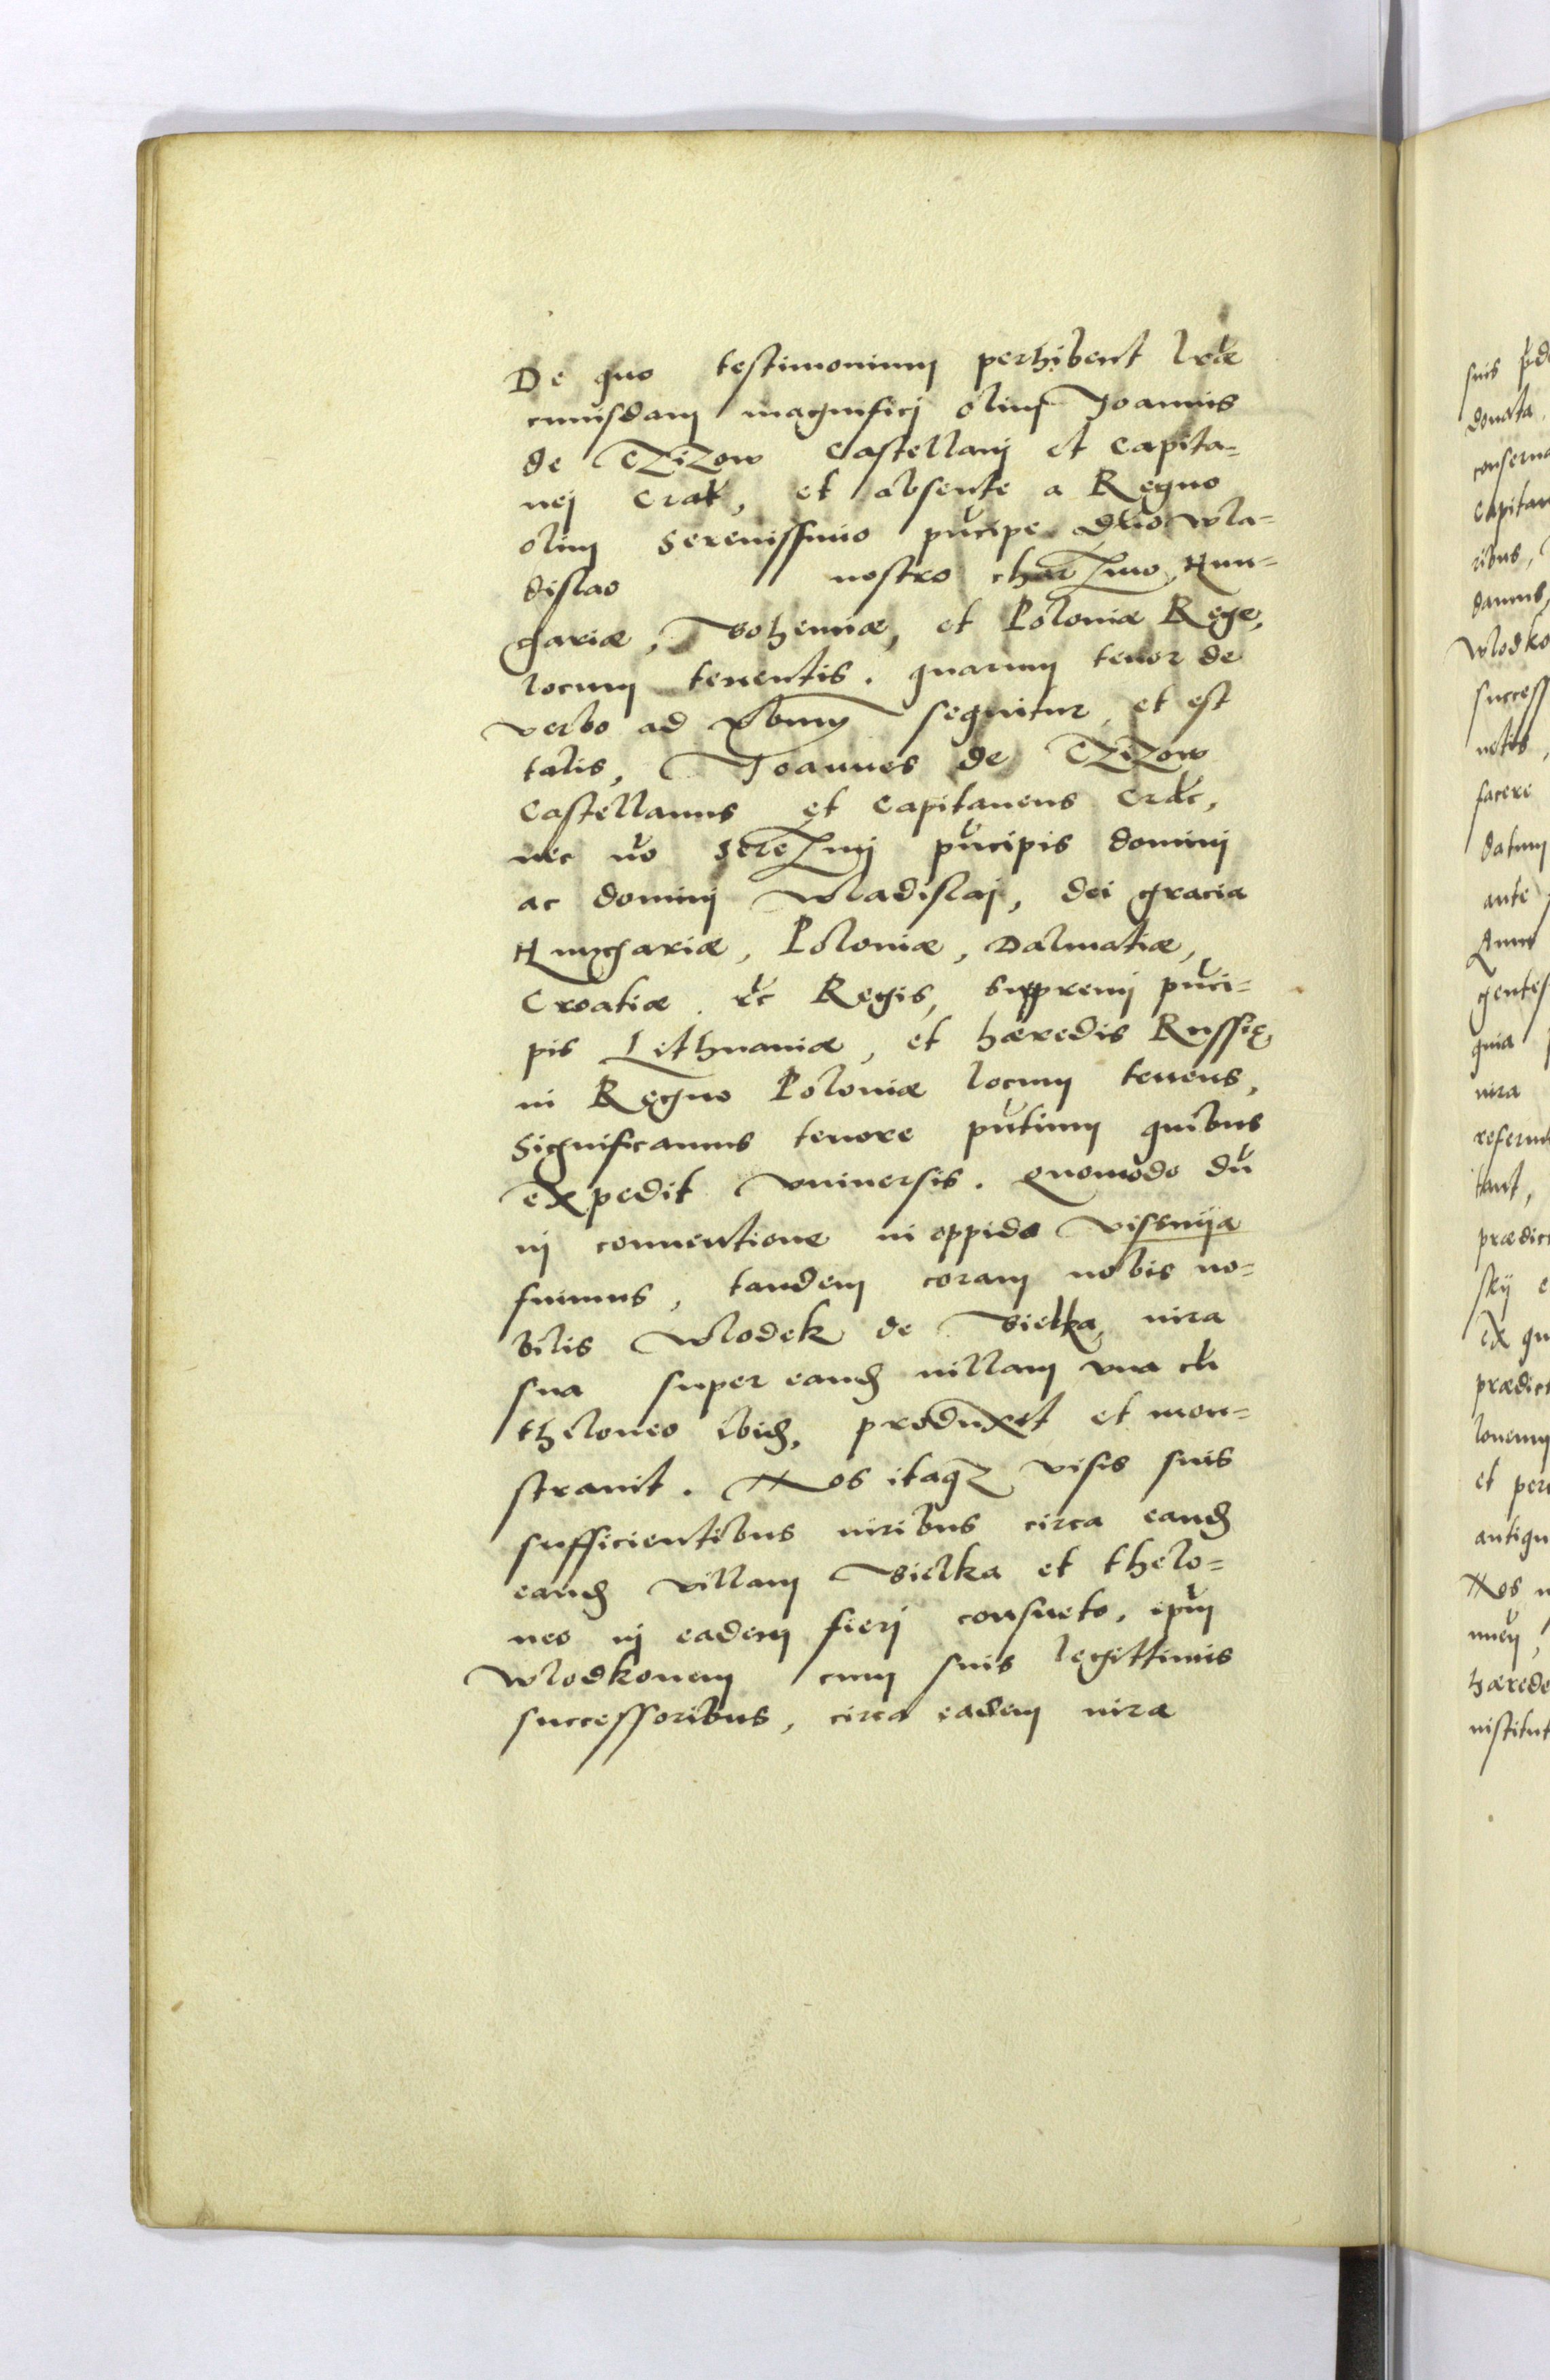 De quo testimonium perhibent lræ
cuiusdam magnifici olim Joannis
de CZiZow Castellani et Capita=
nej Crac, et absente a Regno
olim Serenissimo pncipe Dno Wla=
dislao nostro charZmo, Hun=
gariæ, Bohemiæ, et Poloniæ Rege,
locum tenentis. quarum tenor de
verbo ad vbum sequitur, et est
talis, Joannes de CZiZow
Castellanus et Capitaneus Crac,
nec no SereZmj pncipis dominj
ac dominj Wladislaj, dei gracia
Hungariæ, Poloniæ, Dalmatiæ,
Croatiæ &c Regis, Supremj pnci=
pis Lithuaniæ, et hæredis Russię
in Regno Poloniæ locum tenens,
Significamus tenore pntium quibus
expedit vniuersis. Quomodo du
in conuentione in oppido Vissnija
fuimus, tandem coram nobis no=
bilis Wlodek de Bielka, iura
sua super eand villam vna cu
theloneo ibid, produxit et mon=
strauit. Nos itaqZ visis suis
sufficientibus iuribus circa eand
eand villam Bielka et thelo=
neo in eadem fierj consueto, ipm
Wlodkonem cum suis legittimis
successoribus, circa eadem iura
suis
donata
Capitan
ribus,
damus,
Wlodko
success
facere
datum
ante
gentes
quia
iura
referunt
tant,
prædict
skij
Ex qu
prædict
loneum
et per
antiqu
Nos
hærede
institut